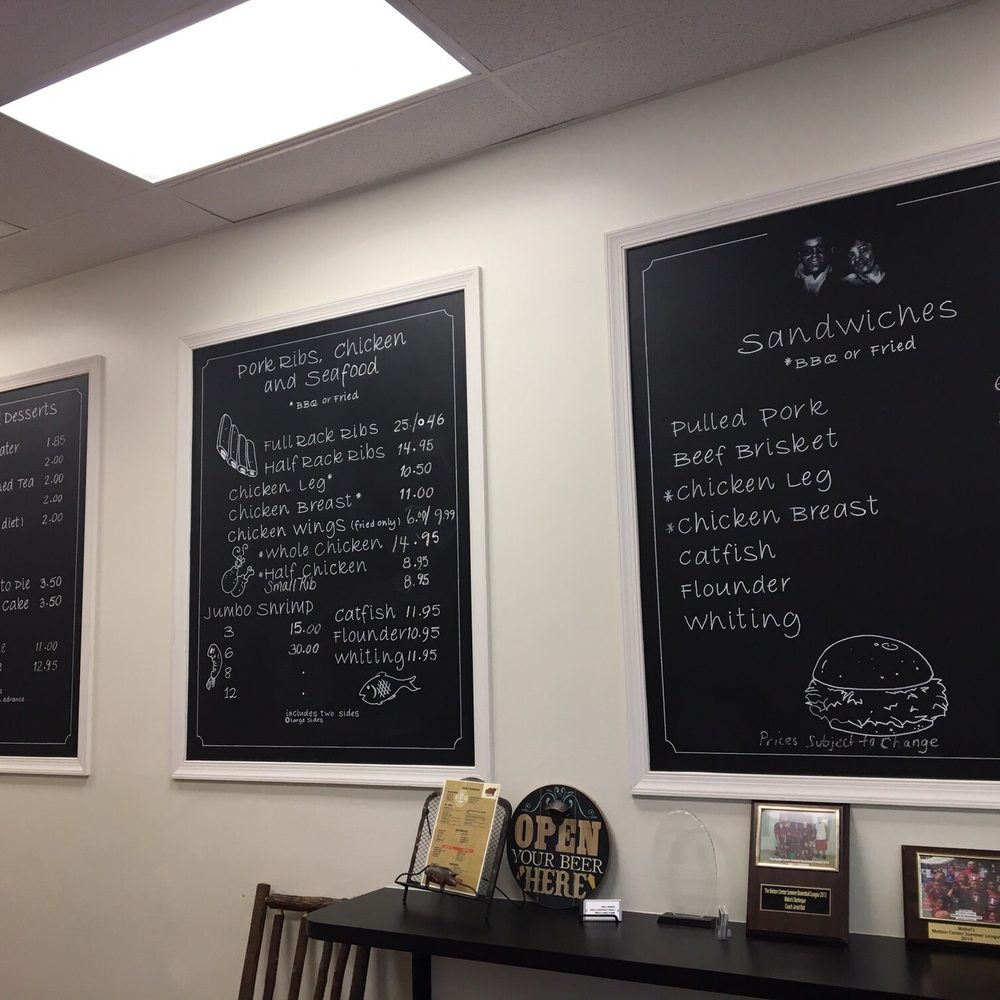 Desserts
ater 1.85
2.00
ned Tea 2.00
2.00
diet) 2.00
to Die 3.50
Cake 3.50
e 11.00
e 12.95
advance
Pork Ribs, Chicken
and Seafood
*BBQ or Fried
Full Rack Ribs 25./046
Half Rack Ribs 14.95
Chicken Leg* 10.50
Chicken Breast* 11.00
Chicken Wings (fried only) 6.00/9.99
*Whole Chicken 14.95
*Half Chicken 8.95
Small Rib 8.95
Jumbo Shrimp
3 15.00
6 30.00
8 .
12 .
Catfish 11.95
Flounder 10.95
Whiting 11.95
includes two sides
Large Sides
Sandwiches
*BBQ or Fried
Pulled Pork
Beef Brisket
*Chicken Leg
*Chicken Breast
Catfish
Flounder
Whiting
Prices Subject to Change
OPEN
YOUR BEER
HERE
The Melton Center Summer Basketball League 2013
Coach Jared Bell
Melton Center Summer League
2014